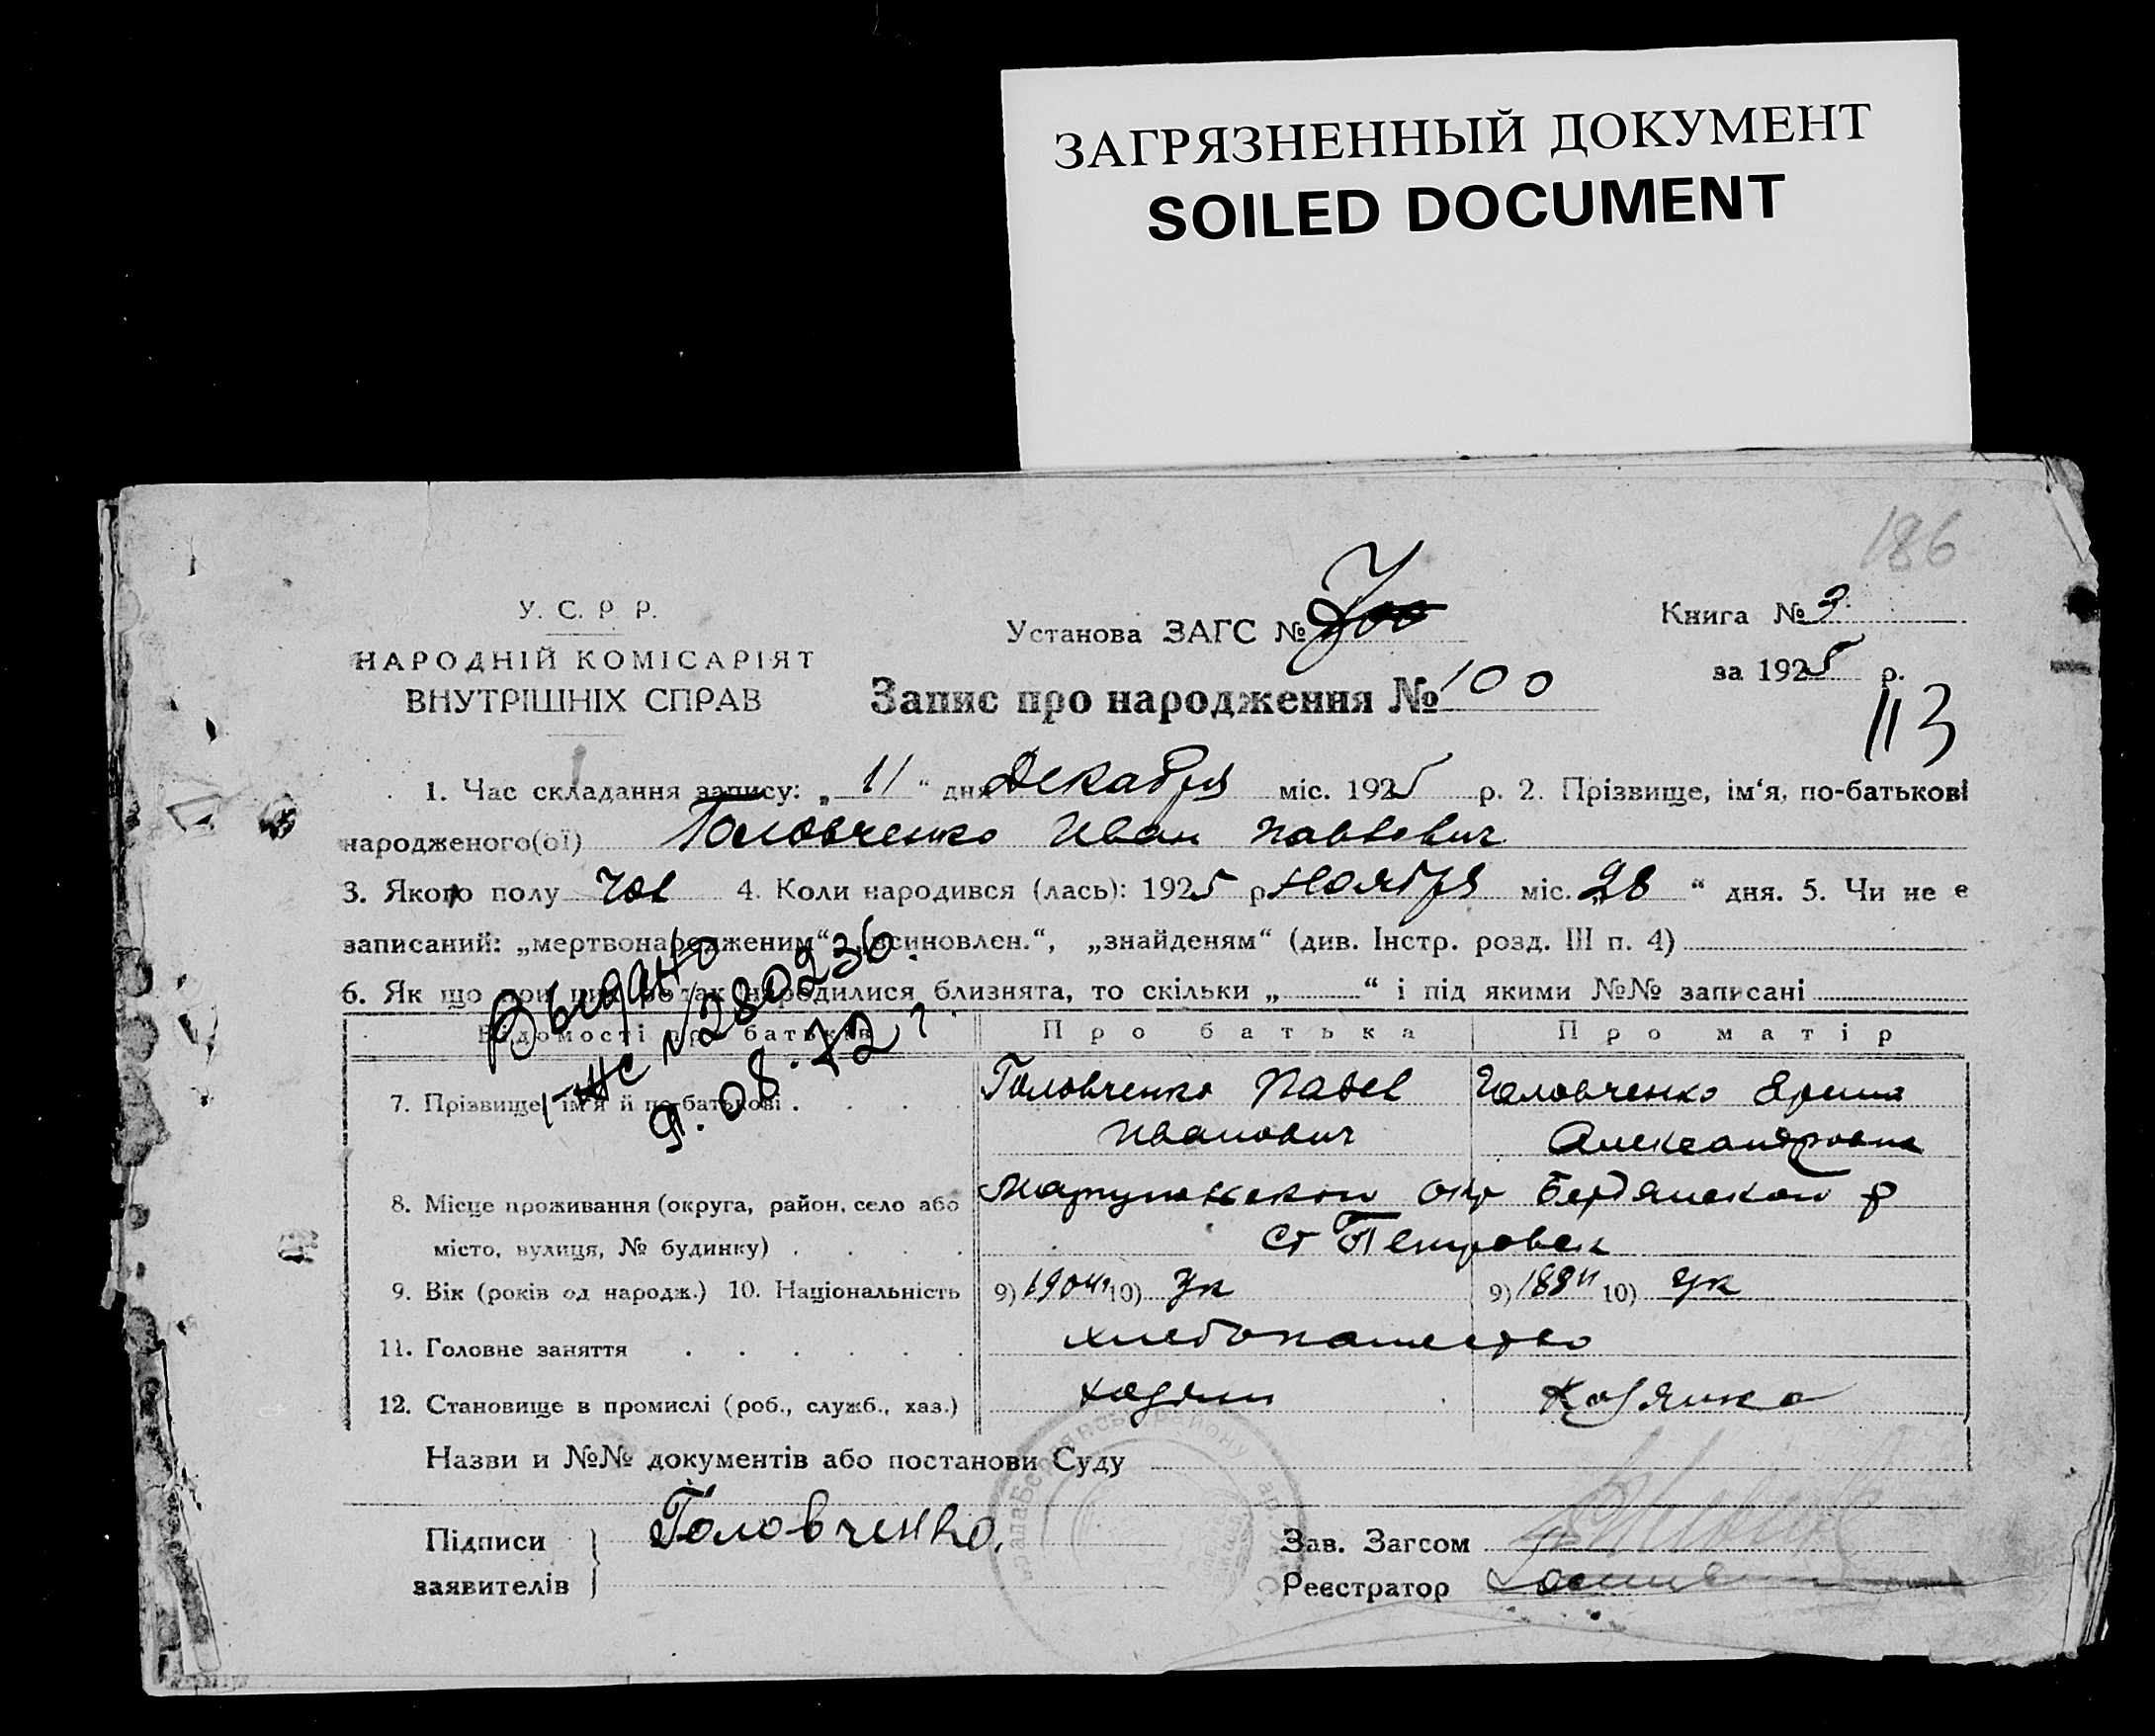 ЗАГРЯЗНЕННЫЙ ДОКУМЕНТ
SOILED DOCUMENT
186
У. С. Р Р.
НАРОДНІЙ КОМІСАРІЯТ
ВНУТРІШНІХ СПРАВ
Установа ЗАГС №
Запис про народження № 100
Книга № 3
за 1925 р.
113
1. Час складання запису: „ 11 “ дня Декабря міс. 1925 р. 2. Прізвище, ім‘я, по-батькові
народженого(ої) Головченко Иван Павлович
3. Якого полу чол 4. Коли народився (лась): 1925 р Ноября міс. „28 “ дня. 5. Чи не є
записаний: „мертвонародженим“, „всиновлен.“, „знайденям“ (див. Інстр. розд. III п. 4)
6. Як що при цих родах народилися близнята, то скільки „ “ і під якими №№ записані
Выдано
I-ЖС №280236
9.08.72 г.
Відомості про батьків Про батька Про матір
7. Прізвище, ім‘я й по-батькові . . . . Головченко Павел Головченко
Иванович Александровна
8. Місце проживання (округа, район, село або Мариупольской окр Бердянской р
місто, вулиця, № будинку) . . . . ст Петровск
9. Вік (років од народж.) 10. Національність 9) 1904 10) Ук 9) 10) Ук
11. Головне заняття . . . . . . хлебопашество
12. Становище в промислі (роб., служб., хаз.) хозяин Хозяйка
Назви и №№ документів або постанови Суду
Підписи Головченко.
заявителів
Зав. Загсом
Реєстратор